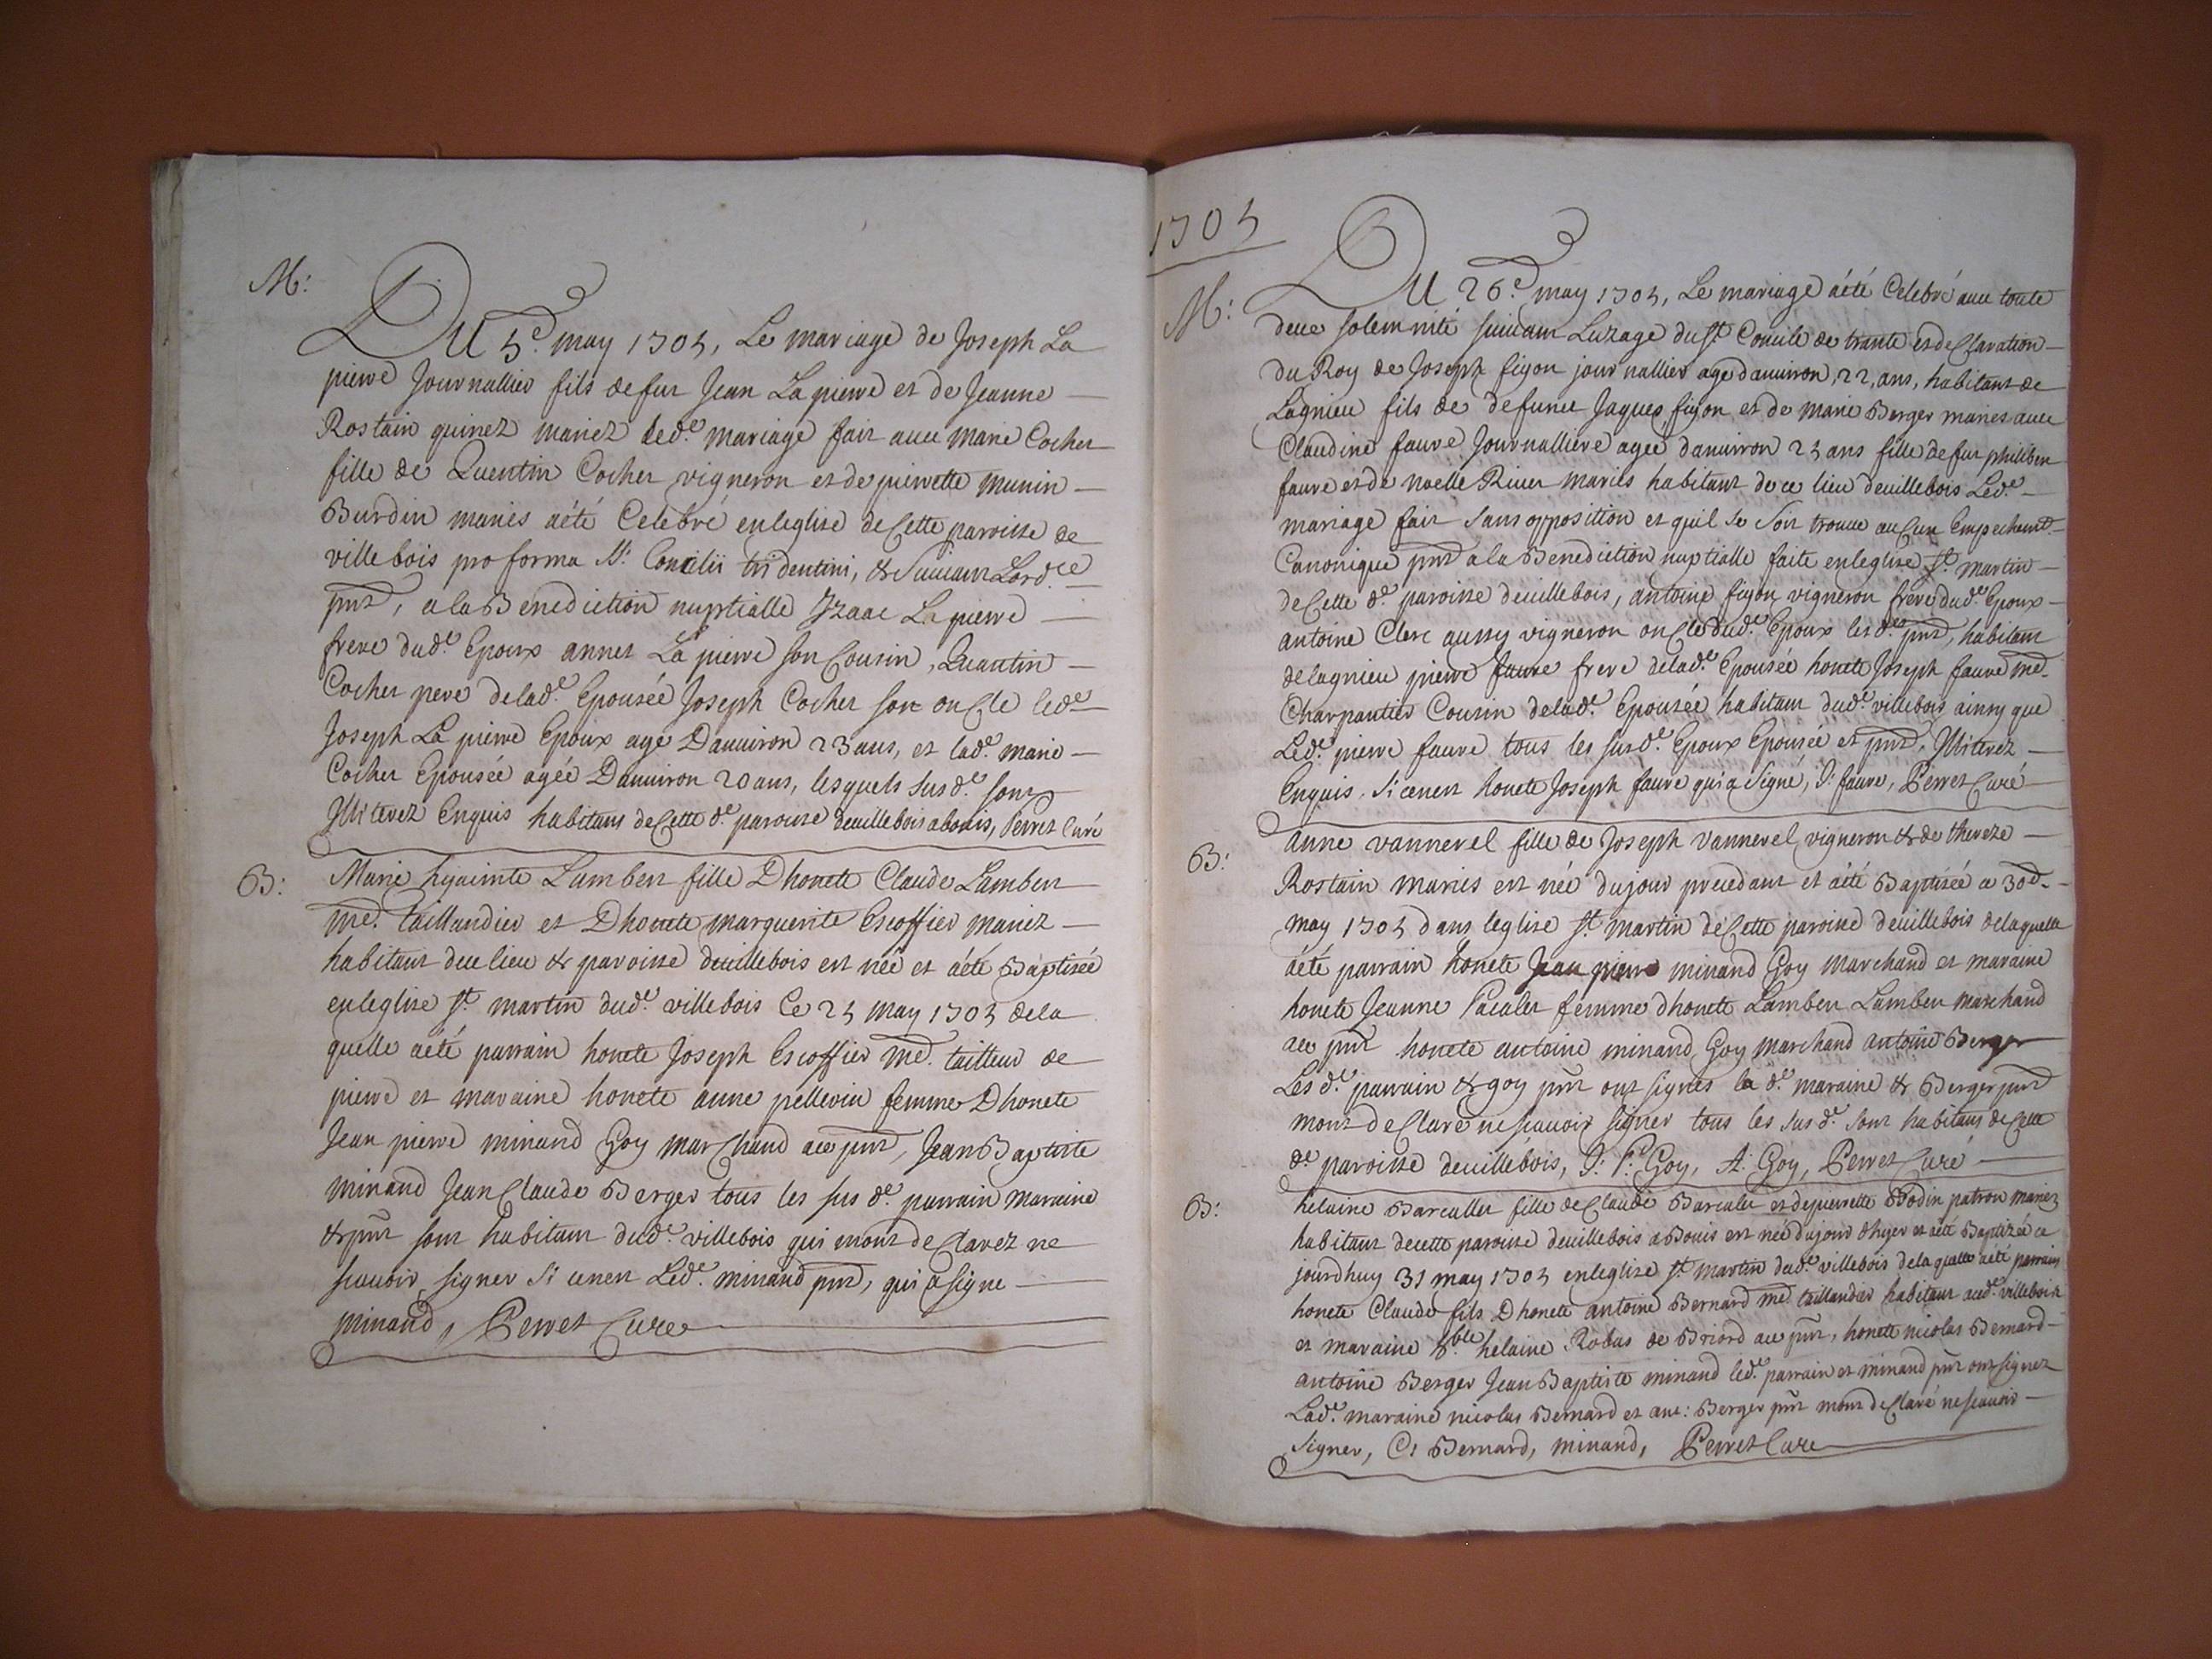 M:
Du 5.e may 1705, Le mariage de Joseph La
pierre Journallier fils de feu Jean La pierre et de Jeanne
Rostain quinez mariez led.e mariage fait avec marie Cocher
fille de Quentin Cocher vigneron et de pierrette munin
Burdin mariés aété Celebré enleglise de Cette paroisse de
villebois pro forma St. Concilii tridentini, & Suivant Lord.ce
pnt, a la Benediction nuptialle Izaac La pierre
frere dud.e Epoux annet La pierre son Cousin, Quantin
Cocher pere delad.e Epousée Joseph Cocher son oncle led.e
Joseph La pierre Epoux agé Danviron 23 ans, et lad.e marie
Cocher Epousée agée Danviron 20 ans, lesquels susd.e sont
Illiterez Enquis habitans de Cette d.e paroisse devillebois abouis, Perret Curé
B:
Marie hyacinte Lambert fille Dhonete Claude Lambert
md. taillandier et Dhonete marguerite Escoffier mariez
habitant dece lieu & paroisse devillebois est née et aété Baptisée
enleglise st. martin dud.e villebois Ce 25 may 1705 dela
quelle aété parrain honete Joseph Escoffier md. tailleur de
pierre et maraine honete anne pellerin femme Dhonete
Jean pierre minand Goy marchand ace pnt, Jean Baptiste
minand Jean Claude Berger tous les sus d.e parrain maraine
& pnt sont habitant dud.e villebois qui mont declarez ne
scavoir signer si cenest Led.e minand pnt, qui a signe
minand, Perret Cure
1705
M:
Du 26.e may 1705, Le mariage aété Celebré avec toute
deue solemnité suivant Luzage du st Concile de trante et declaration
du Roy de Joseph figon journallier agé danviron, 22, ans, habitant de
Lagnieu fils de defunct Jaques figon et de marie Berger mariés avec
Claudine faure Journalliere agée danviron 25 ans fille de feu philibert
faure et de noelle River mariés habitant de ce lieu devillebois Led.e
mariage fait sans opposition et quil se soit trouve aucun Empechemt.
Canonique pnt a la Benediction nuptialle faite enleglise st. martin
de Cette d.e paroisse devillebois, antoine figon vigneron frere dud.e Epoux
antoine Clerc aussy vigneron oncle dud.e Epoux les d.es pnt, habitant
delagnieu pierre faure frere delad.e Epousée honete Joseph faure md.
Charpantier Cousin delad.e Epousée habitant dud.e villebois ainsy que
Led.e pierre faure tous les susd.e Epoux Epousée et pnt, Illiterez
Enquis, si cenest honete Joseph faure qui a signé, J: faure, Perret Curé
B:
anne vannerel fille de Joseph vannerel vigneron & de thereze
Rostain mariés est née dujour precedant et aété Baptisée ce 30e.
may 1705 dans leglise st. martin de Cette paroisse devillebois delaquelle
aété parrain honete Jean pierre minand Goy marchand et maraine
honete Jeanne Pacalet femme dhonete Lambert Lambert marchand
ace pnt honete antoine minand Goy marchand antoine Berger
Les d.e parrain & goy pnt ont signés la d.e maraine & Berger pnt
mont declaré ne scavoir signer tous les sus d.e sont habitans de Cette
d.e paroisse devillebois, J: P: Goy, A: Goy, Perret Curé
B:
helaine Barcallet fille de Claude Barcalet et depierrette Bodin patron mariez
habitant decette paroisse devillebois a Bouis est née dujour dhyer et aété Baptizée ce
jourdhuy 31 may 1705 enleglise st. martin dud.e villebois delaquelle aété parrain
honete Claude fils Dhonete antoine Bernard md. taillandier habitant aud.e villebois
et maraine h.ble helaine Robas de Briord ace pnt, honete nicolas Bernard
antoine Berger Jean Baptiste minand led.e parrain et minand pnt ont signez
Lad.e maraine nicolas Bernard et ant: Berger pnt mont declaré ne scavoir
signer, C: Bernard, minand, Perret Cure